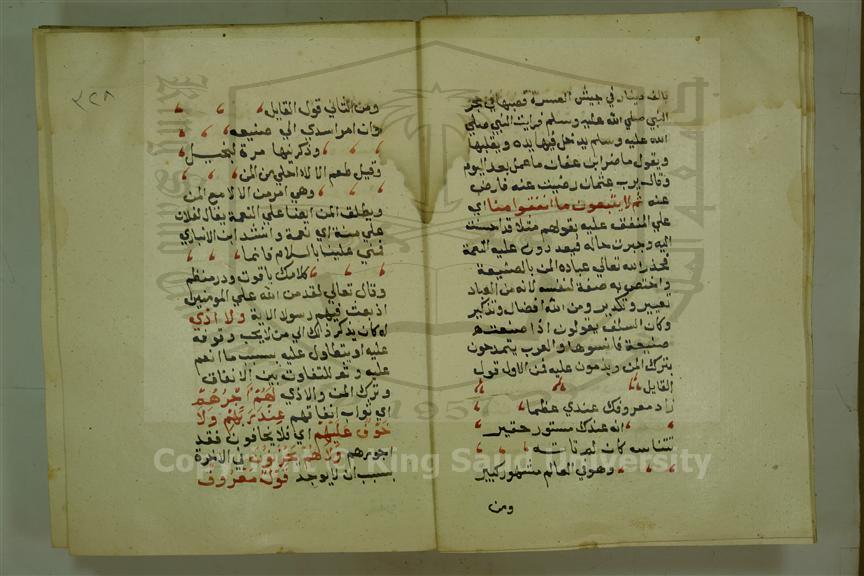 بالف دينار في جيش العسرة فصبها في حجر
النبي صلي الله عليه وسلم فرايت النبي صلي
الله عليه وسلم يدخل فيها يده ويقلبها
ويقول ما ضر ابن عفان ما عمل بعد اليوم
وقال يرب عثمان رضيت عنه فارض
عنه ثم لا يتبعون ما انفقوا منا اي
علي المنفق عليه بقولهم مثلا قد احسنت
اليه وجبرت حاله فيعددون عليه النعمة
فحذر الله تعالي عباده المن بالصنيعة
واختص به صفة لنفسه لانه من العباد
تعيير وتكدير ومن الله افضال وتذكير
وكان السلف يقولون اذا صنعتم
صنيعة فانسوها والعرب يتمدحون
بترك المن ويذمون عليه فمن الاول قول
القايل
زاد معروفك عندي عظما
انه عندك مستور حقير
تتناساه كان لم تاته
وهو في العالم مشهور كبير
ومن
٣٢٨
ومن الثاني قول القايل
وان امرا سدي الي صنيعه
وذكرنيها مرة لبخيل
وقيل طعم الالاء احلي من المن
وهي امر من الالاء مع المن
ويطلق المن ايضا علي النعمة يقال لفلان
علي منة اي نعمة وانشد ابن الانباري
فمني علينا بالسلام فانما
كلامك ياقوت ودر منظم
وقال تعالي لقد من الله علي المومنين
اذ بعث فيهم رسولا الاية ولا اذي
له كان يذكر ذلك الي من لا يحب وقوفه
عليه او يتطاول عليه بسبب ما انعم
عليه وثم للتفاوت بين الانفاق
وترك المن والاذي لهم اجرهم
اي ثواب انفاقهم عند ربهم ولا
خوف عليهم اي فلا يخافون فقد
اجورهم ولا هم يحزنون في الاخرة
بسبب ان لا يوجد قول معروف
Copyright © King Saud University
1957